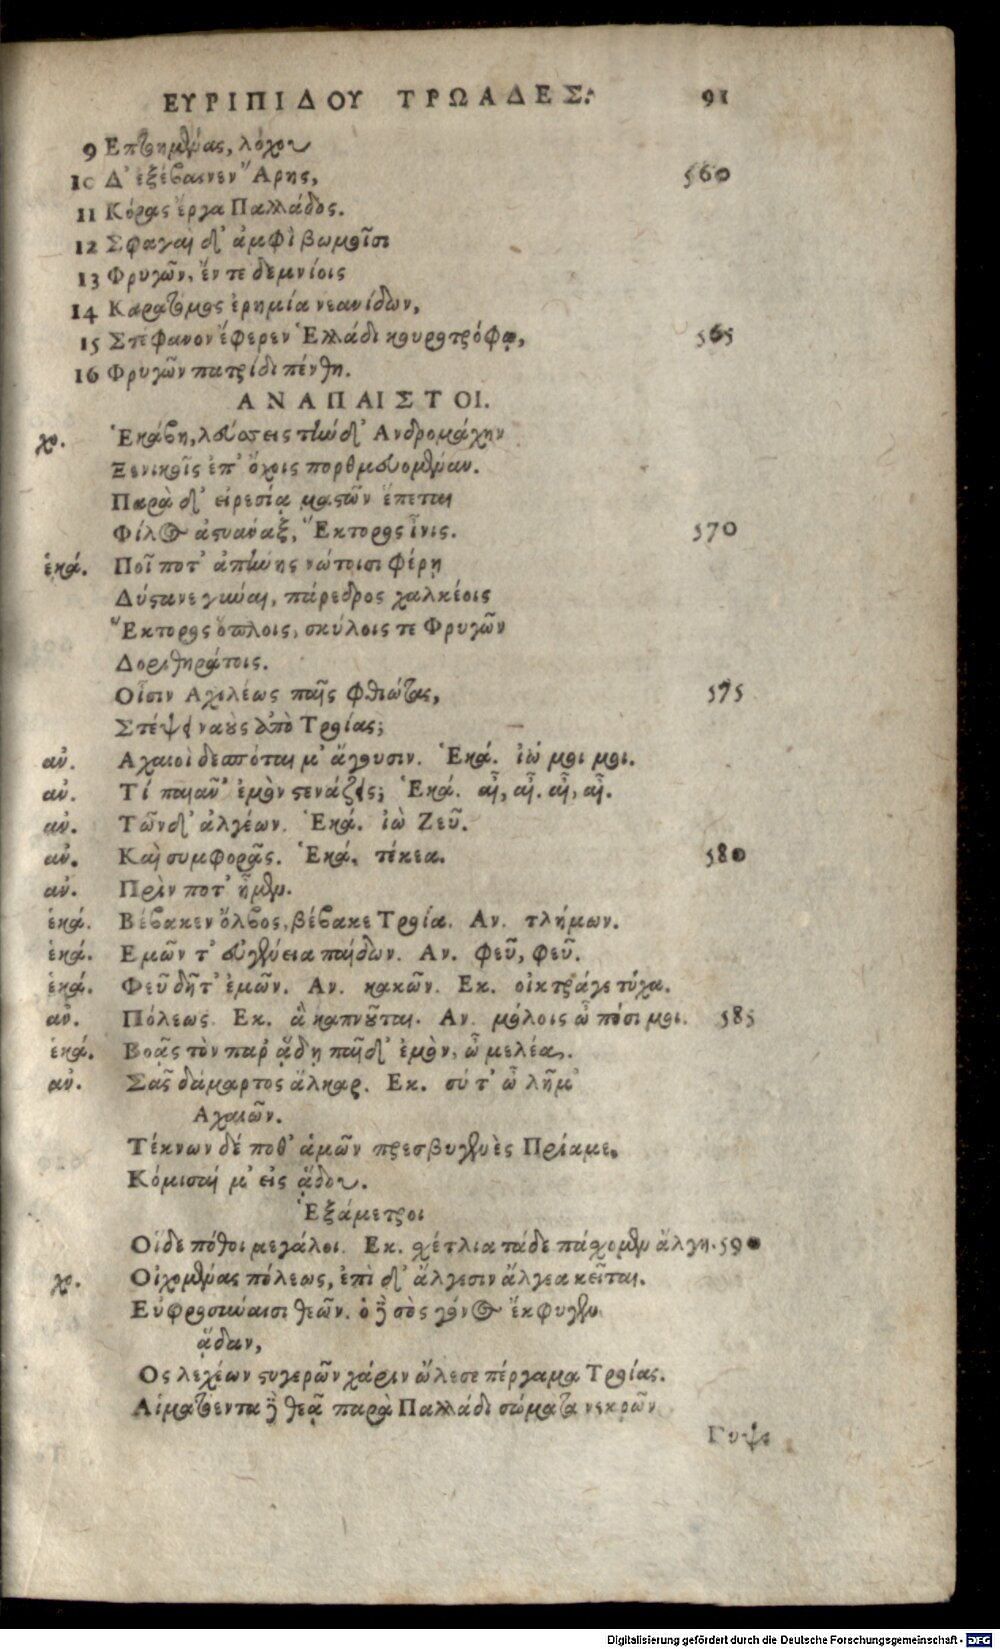 ΕΥΡΙΠΙΔΟΥ ΤΡΩΑΔΕΣ. 91
9 Επτοημένας, λόχου
10 Δ' ἐξέβαινεν Ἄρης, 560
11 Κόρας ἔργα Παλλάδος.
12 Σφαγαὶ δ' ἀμφὶ βωμοῖσι
13 Φρυγῶν, ἔν τε δεμνίοις
14 Καρατόμος ἐρημία νεανίδων,
15 Στέφανον ἔφερεν Ἑλλάδι κουροτρόφῳ, 565
16 Φρυγῶν πατρίδι πένθη.
ΑΝΑΠΑΙΣΤΟΙ.
χο. Ἑκάβη, λεύσσεις τήνδ' Ανδρομάχην
Ξενικοῖς ἐπ' ὄχοις πορθμευομέναν.
Παρὰ δ' εἰρεσίᾳ μαστῶν ἕπεται
Φίλος ἀστυάναξ, Ἕκτορος ἶνις. 570
ἑκά. Ποῖ ποτ' ἀπήνης νώτοισι φέρῃ
Δύστανε γύναι, πάρεδρος χαλκέοις
Ἕκτορος ὅπλοις, σκύλοις τε Φρυγῶν
Δοριθηράτοις.
Οἷσιν Αχιλέως παῖς φθιώτας, 575
Στέψει ναοὺς ἀπὸ Τροίας;
αν. Αχαιοὶ δεσπόται μ' ἄγουσιν. Ἑκά. ἰώ μοι μοι.
αν. Τί παιᾶν' ἐμὸν στενάζεις; Ἑκά. αἶ, αἶ. αἶ, αἶ.
αν. Τῶνδ' ἀλγέων. Ἑκά. ἰὼ Ζεῦ.
αν. Καὶ συμφορᾶς. Ἑκά. τέκεα. 580
αν. Πρίν ποτ' ἦμεν.
ἑκά. Βέβακεν ὄλβος, βέβακε Τροία. Αν. τλήμων.
ἑκά. Εμῶν τ' εὐγένεια παίδων. Αν. φεῦ, φεῦ.
ἑκά. Φεῦ δῆτ' ἐμῶν. Αν. κακῶν. Εκ. οἰκτρά γε τύχα.
αν. Πόλεως. Εκ. ἃ καπνοῦται. Αν. μόλοις ὦ πόσι μοι. 585
ἑκά. Βοᾷς τὸν παρ' ᾅδῃ παῖδ' ἐμὸν, ὦ μελέα.
αν. Σᾶς δάμαρτος ἄλκαρ. Εκ. σύ τ' ὦ λῆμ'
Αχαιῶν.
Τέκνων δέ ποθ' ἁμῶν πρεσβυγενὲς Πρίαμε.
Κόμισαί μ' εἰς ᾅδου.
Ἑξάμετροι
Οἵδε πόθοι μεγάλοι. Εκ. σχέτλια τάδε πάσχομεν ἄλγη. 590
χο. Οἰχομένας πόλεως, ἐπὶ δ' ἄλγεσιν ἄλγεα κεῖται.
Εὐφροσύναισι θεῶν. ὁ γὰρ σὸς γόνος ἔκφυγεν
ᾅδαν,
Ος λεχέων στυγερῶν χάριν ὤλεσε πέργαμα Τροίας.
Αἱματόεντα γὰρ θεᾷ παρὰ Παλλάδι σώματα νεκρῶν
Γυψὶ
Digitalisierung gefördert durch die Deutsche Forschungsgemeinschaft - DFG